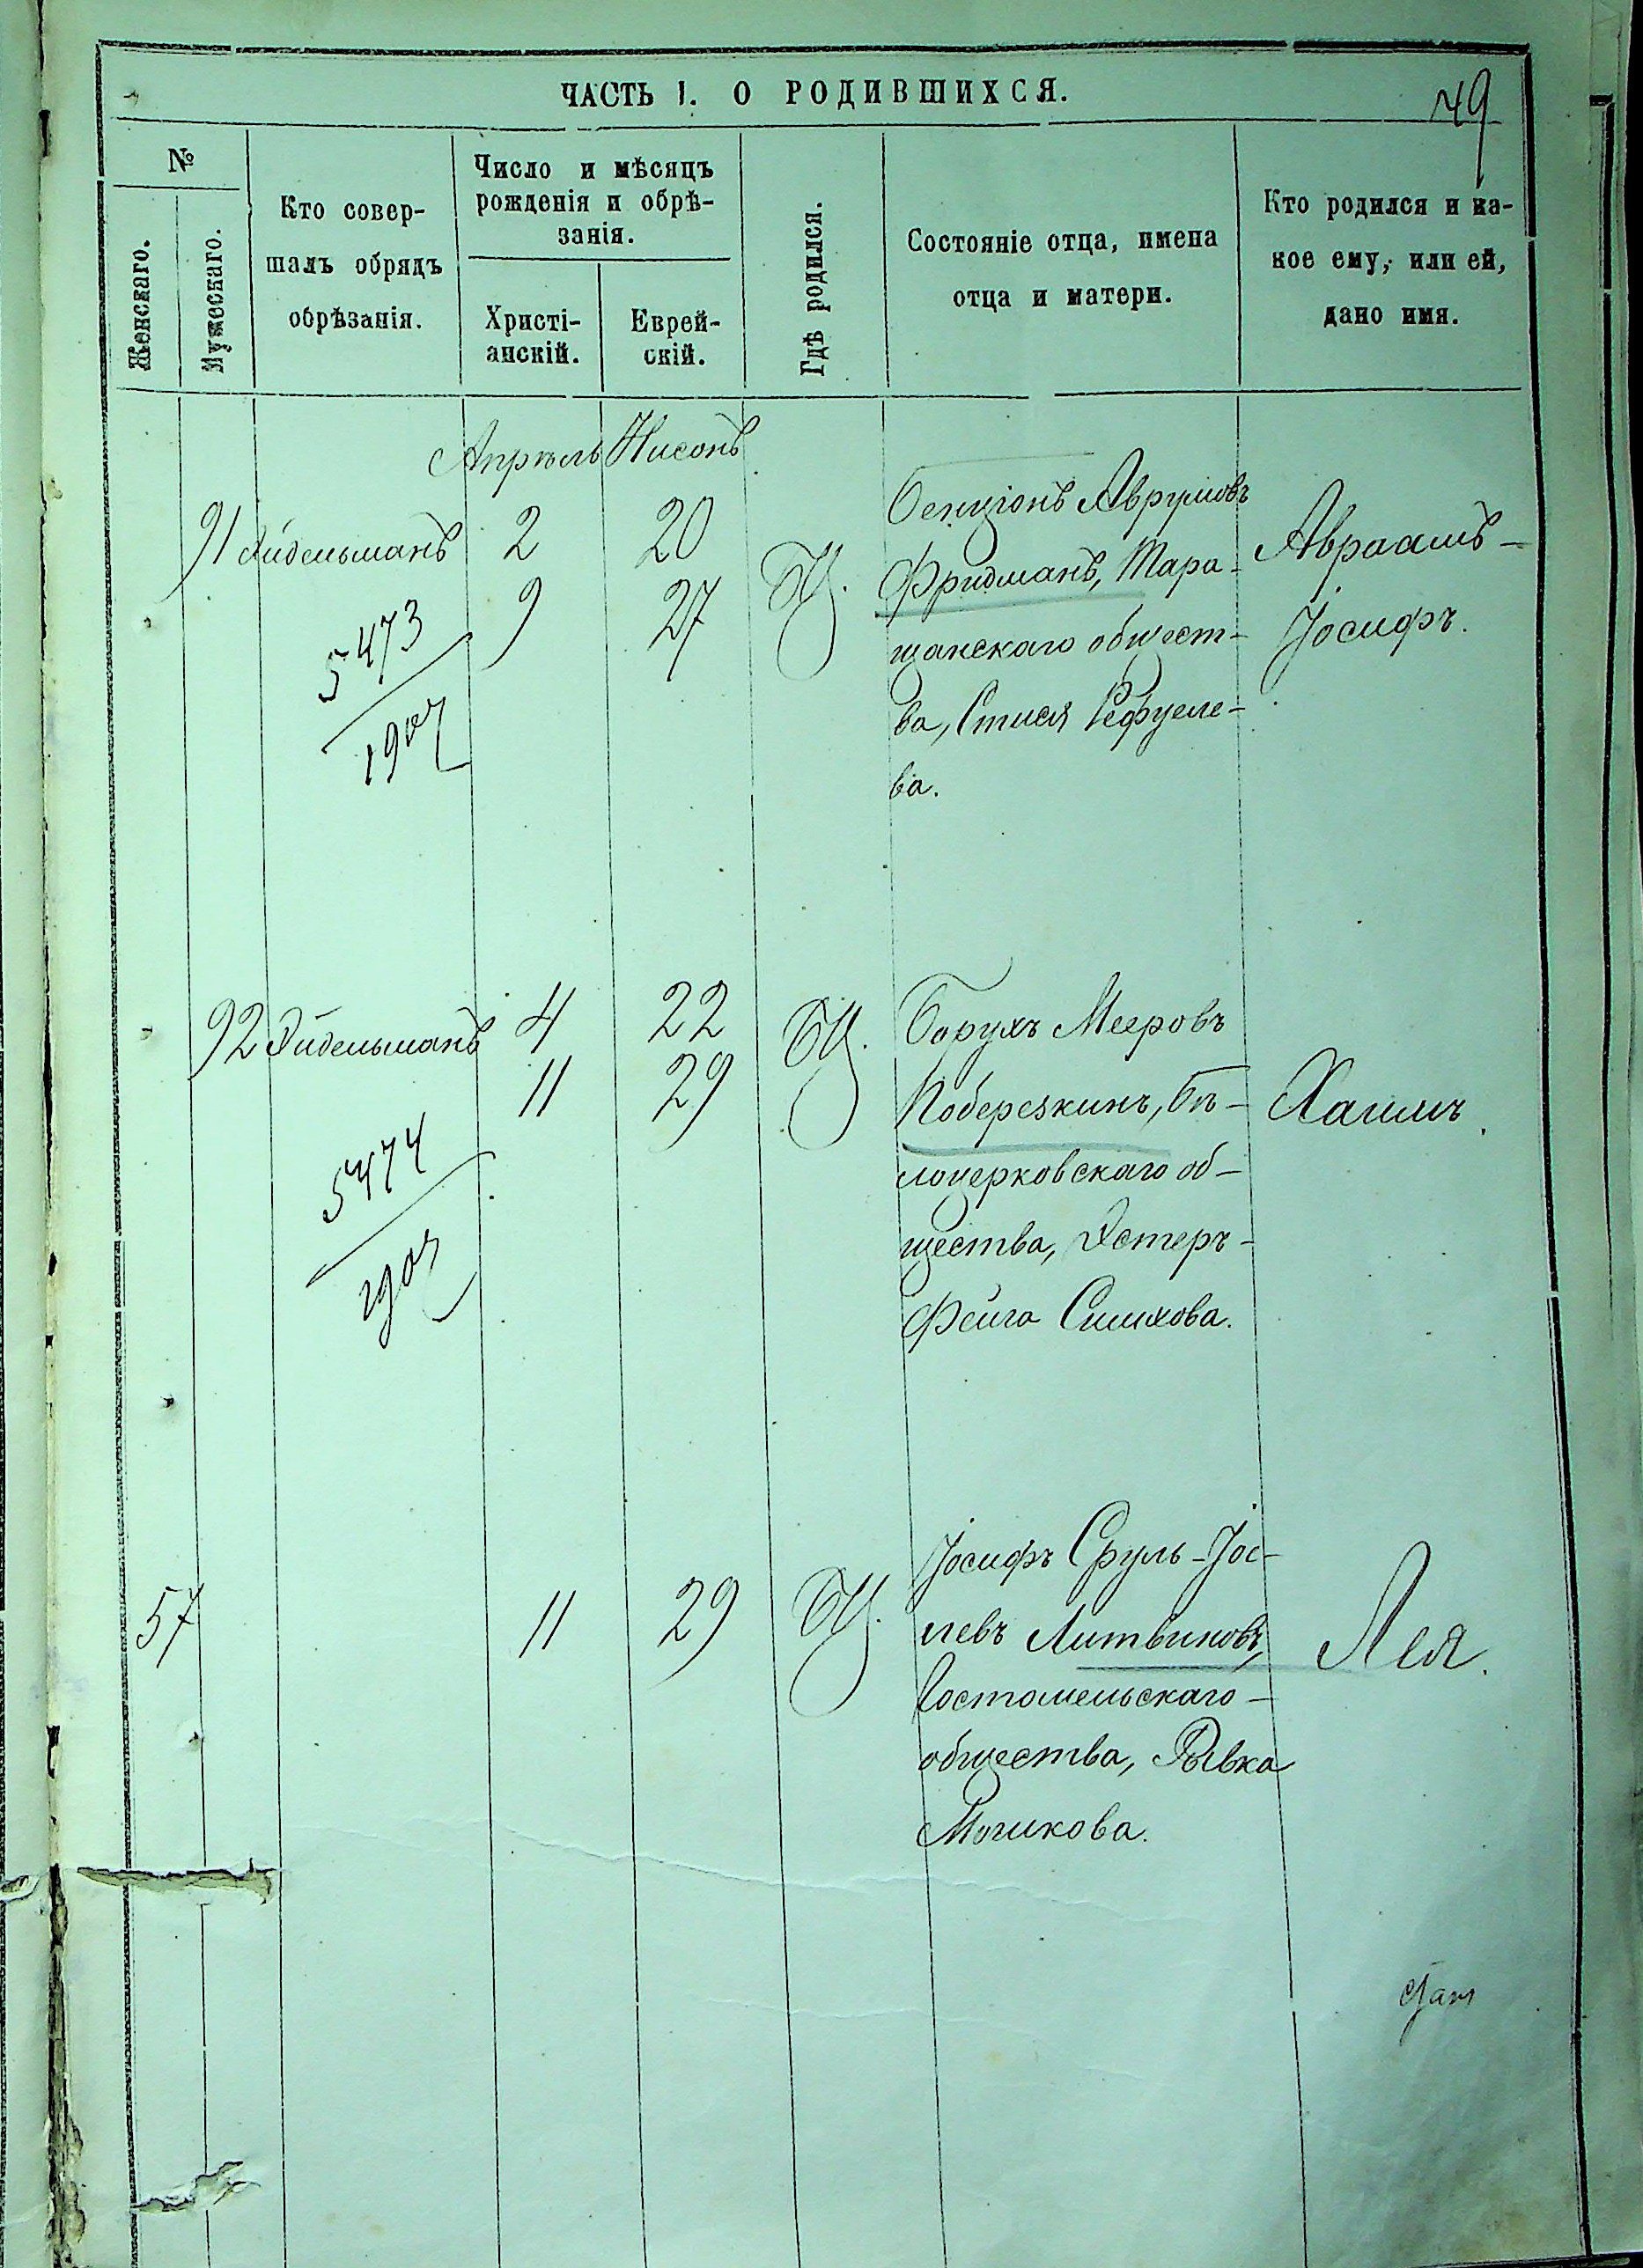 ЧАСТЬ I. О РОДИВШИХСЯ.
49
№
Женскаго.
Мужескаго.
Кто совер-
шалъ обрядъ
обрѣзанія.
Число и мѣсяцъ
рожденія и обрѣ-
занія.
Христі-
анскій.
Еврей-
скій.
Гдѣ родился.
Состояніе отца, имена
отца и матери.
Кто родился и ка-
кое ему, или ей,
дано имя.
Апрѣль Нисонъ
91 Эйдельманъ 2 20 БЦ.
9 27
5473
1907
Бенціонъ Аврумовъ
Фридманъ, Тара-
щанскаго общест-
ва, Стися Рефуеле-
ва.
Авраамъ-
Іосифъ.
92 Эйдельманъ 4 22 БЦ.
11 29
5474
1907
Борухъ Мееровъ
Поберезкинъ, Бѣ-
лоцерковскаго об-
щества, Эстеръ-
Фейга Симхова.
Хаимъ.
57 11 29 БЦ.
Іосифъ Сруль-Іос-
левъ Литвиновъ,
Гостомельскаго
общества, Рывка
Мошкова.
Лея.